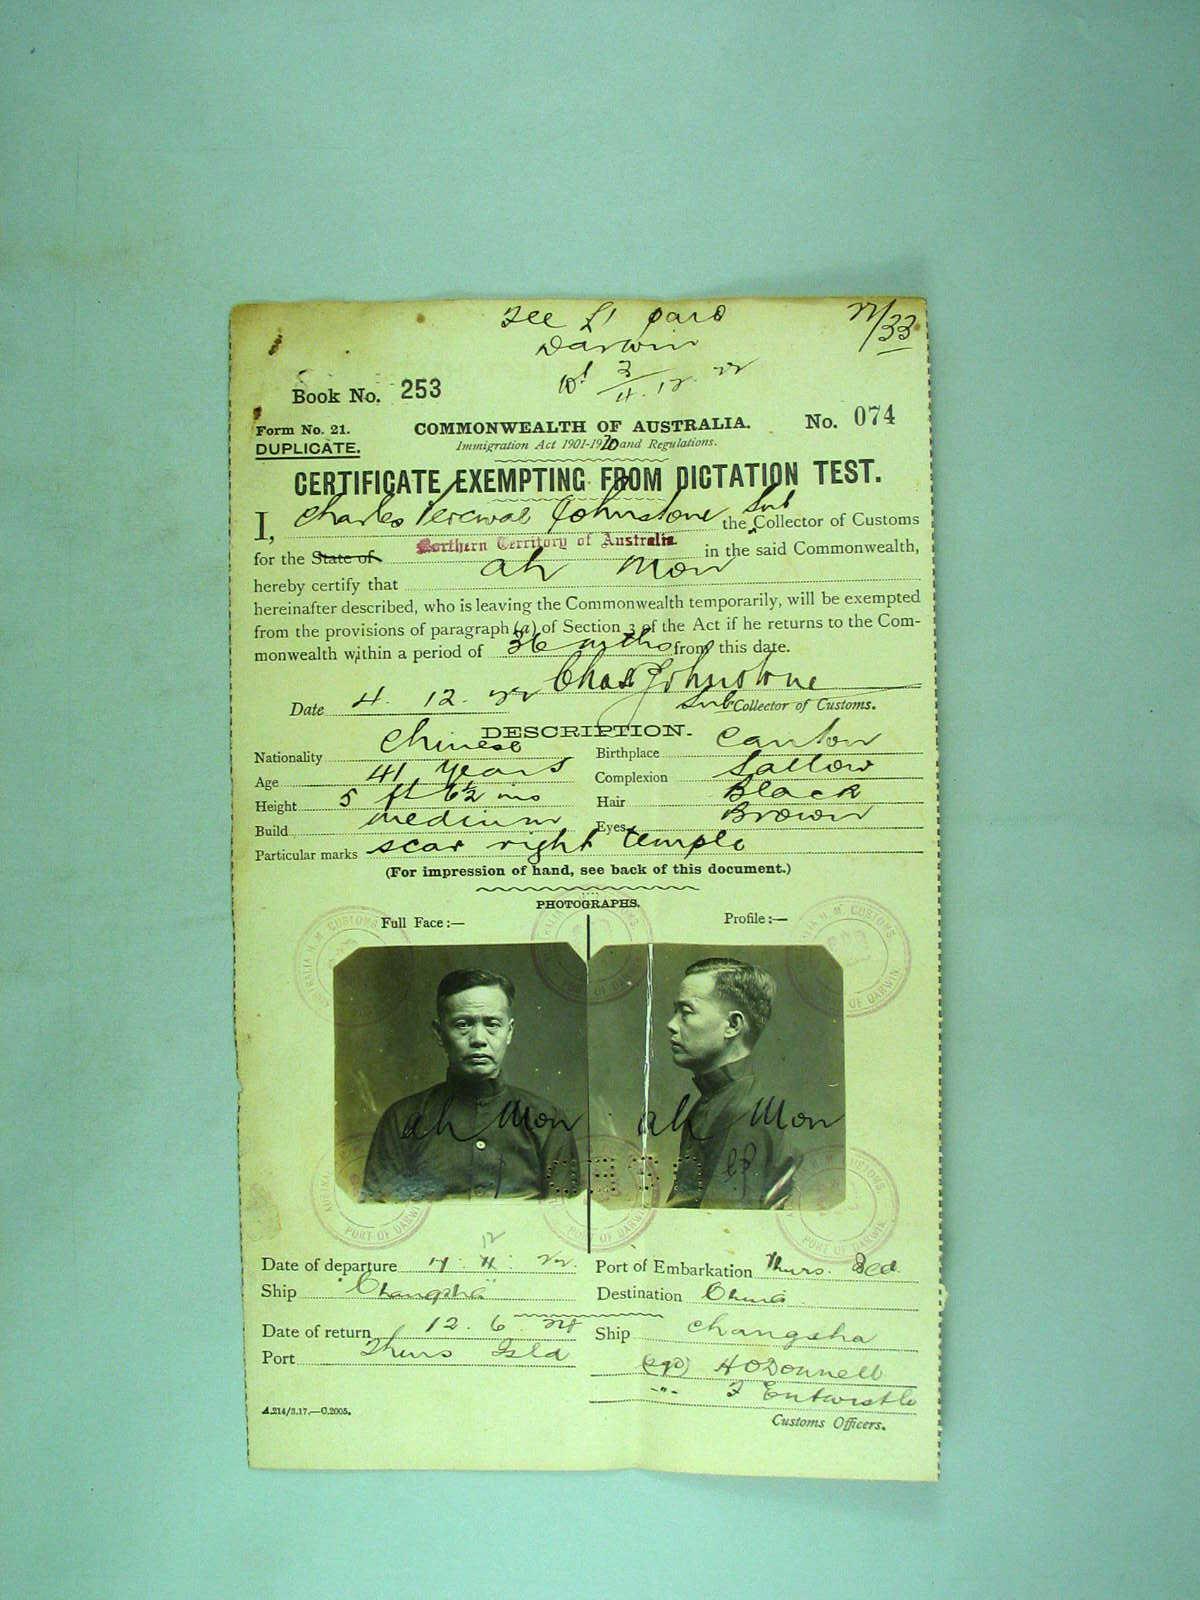 See
Darwin
22/33
Book No. 253
Form No. 21.
DUPLICATE.
COMMONWEALTH OF AUSTRALIA.
No. 074
Immigration Act 1901-1920 and Regulations.
CERTIFICATE EXEMPTING FROM DICTATION TEST.
I, Charles Percival Johnstone the Sub Collector of Customs
for the State of Northern Territory of Australia in the said Commonwealth,
hereby certify that Ah Mon
hereinafter described, who is leaving the Commonwealth temporarily, will be exempted
from the provisions of paragraph (a) of Section 3 of the Act if he returns to the Com-
monwealth within a period of 36 mths from this date.
Chas P Johnstone
Date 4. 12. 22
Sub Collector of Customs.
DESCRIPTION.
Nationality Chinese Birthplace Canton
Age 41 years Complexion Sallow
Height 5 ft 6½ ins Hair Black
Build medium Eyes Brown
Particular marks scar right temple
(For impression of hand, see back of this document.)
PHOTOGRAPHS.
Full Face:— Profile:—
Ah Mon Ah Mon
PORT OF DARWIN
Date of departure 12 22. Port of Embarkation Thurs. Isld.
Ship "Changsha" Destination China
Date of return 12. 6. 24 Ship Changsha
Port Thurs Isld
(sgd) H O'Donnell
-"- F Entwistle
A.214/3.17.—C.2005.
Customs Officers.